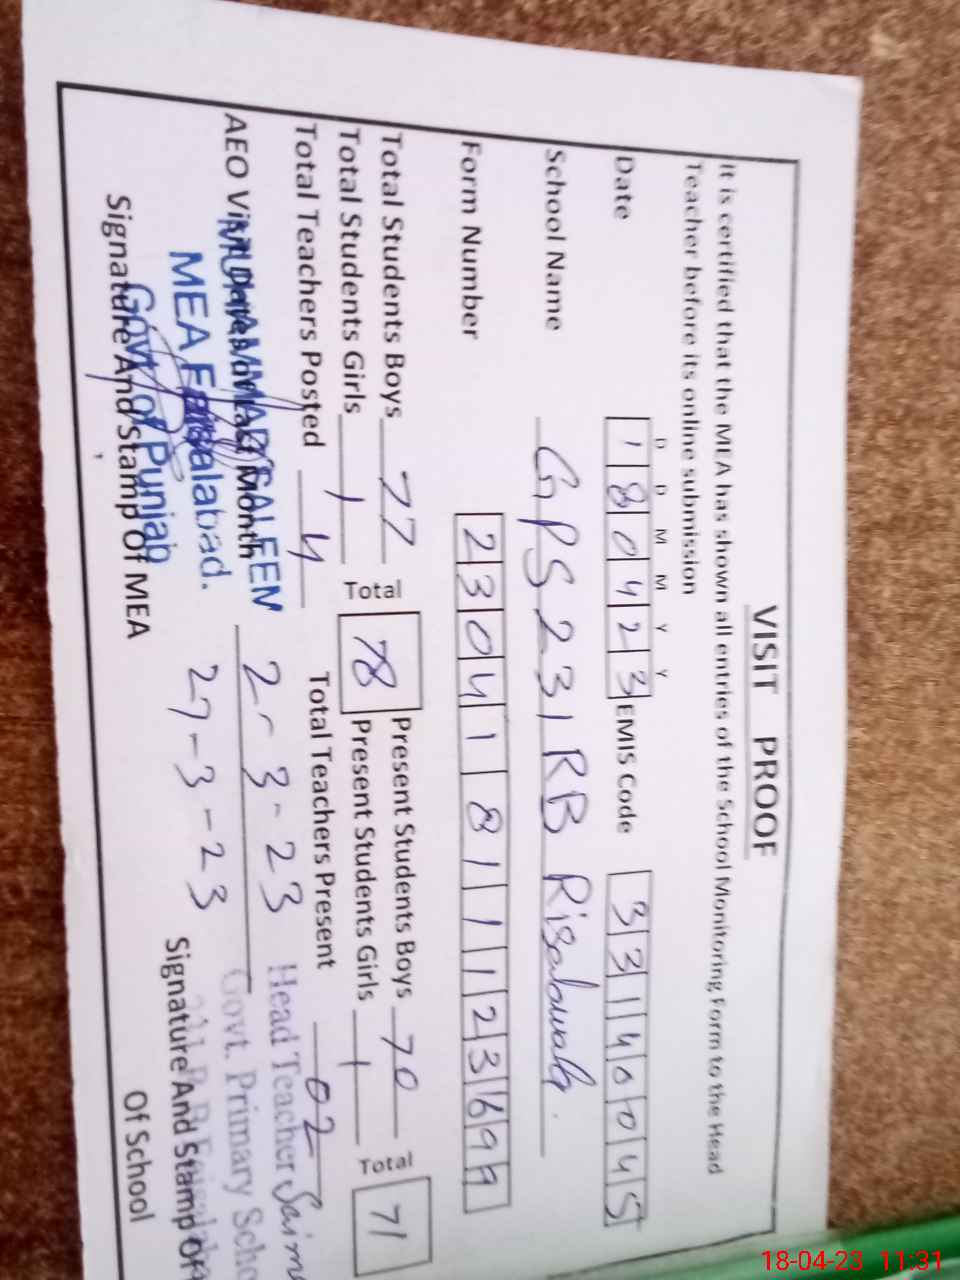 VISIT PROOF
It is certified that the MEA has shown all entries of the School Monitoring Form to the Head
Teacher before its online submission
D D M M Y Y
Date 180423 EMIS Code 33140045
School Name GPS 231 RB Risalawala.
Form Number 2304181112369
Total Students Boys 77 Total 78 Present Students Boys 70 Total 71
Total Students Girls 1 Present Students Girls 1
Total Teachers Posted 4 Total Teachers Present 02
AEO Visit Dates of Last Month 3-23
27-3-23
MUHAMMAD SALEEM
MEA Faisalabad.
Govt of Punjab
Head Teacher
Govt. Primary
Signature And Stamp Of MEA
Signature And Stamp Of
Of School
18-04-23 11:31